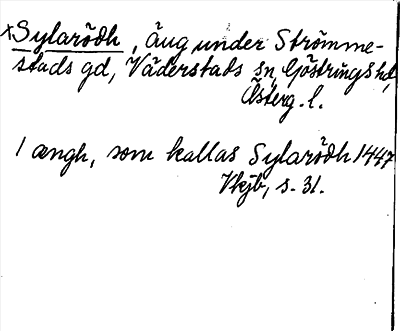 *Sylarödh, äng under Strömme-
stads gd, Väderstads sn, Göstrings hd,
Österg. l.
1 ængh, som kallas Sylarödh 1447
Vkjb, s. 31.